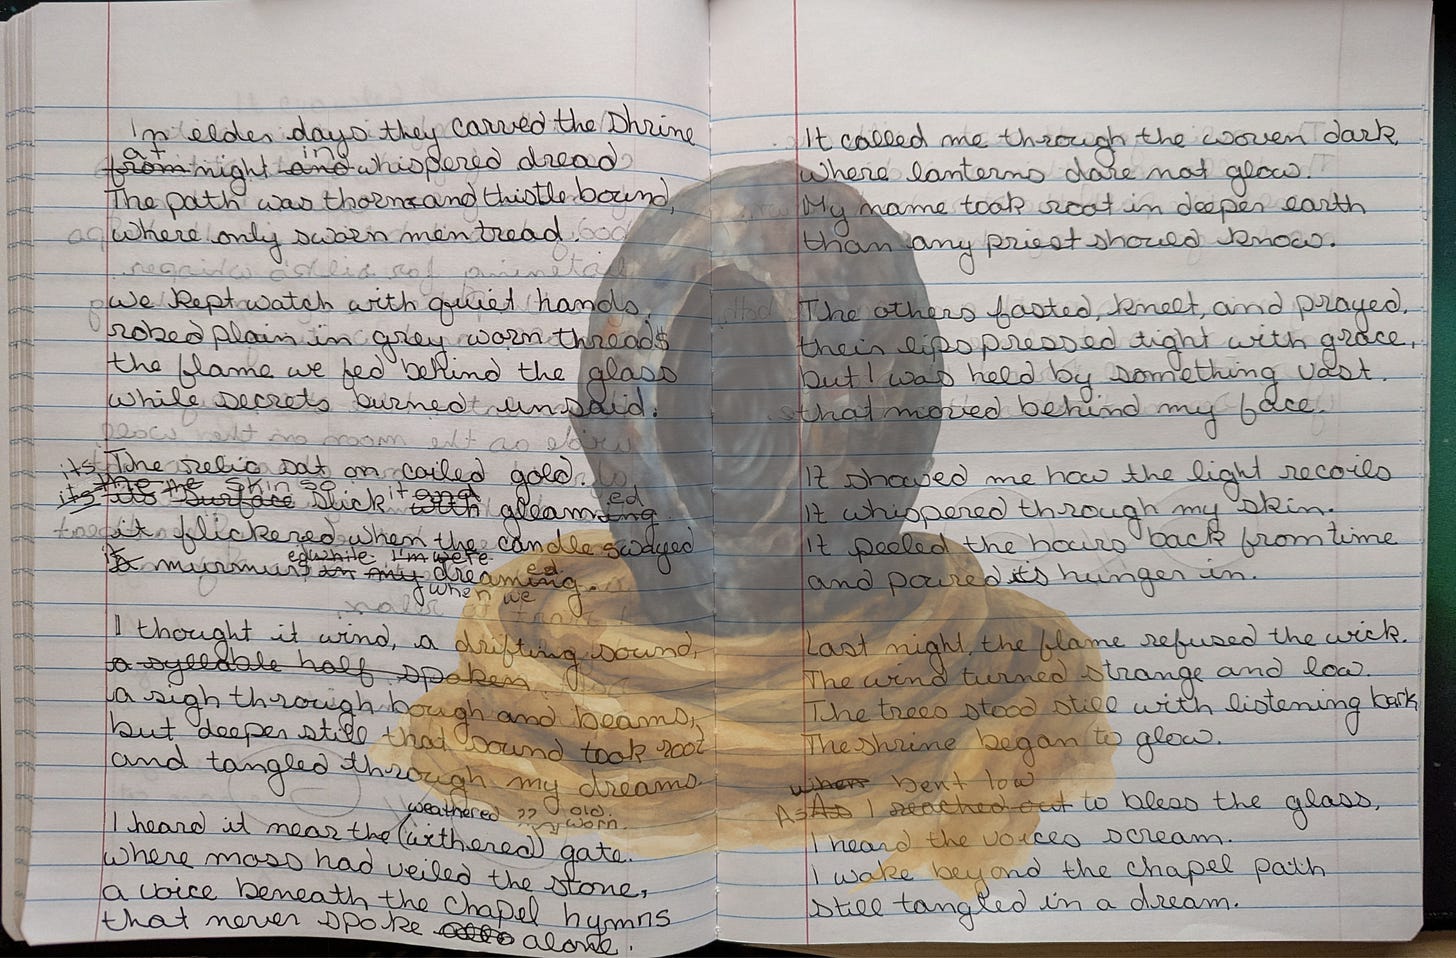 In elder days they carved the shrine
at in
from night and whispered dread
The path was thorn and thistle bound,
where only sworn men tread.
we kept watch with quiet hands.
robed plain in grey worn threads
the flame we fed behind the glass
while secrets burned unsaid.
The relic sat on coiled gold.
its the the skin so
its its surface slick it and with gleaming ed
it flickered when the candle swayed
ed while I'm were
It murmurs in my dreaming. ed
when we
I thought it wind, a drifting sound,
a syllable half spoken
a sigh through bough and beams,
but deeper still that sound took root
and tangled through my dreams.
weathered ?? old.
worn.
I heard it near the (withered) gate.
where moss had veiled the stone,
a voice beneath the chapel hymns
that never spoke alone.
It called me through the woven dark
where lanterns dare not glow.
My name took root in deeper earth
than any priest should know.
The others fasted, knelt, and prayed,
their lips pressed tight with grace,
but I was held by something vast.
that moved behind my face.
It showed me how the light recoils
It whispered through my skin.
It peeled the hours back from time
and poured its hunger in.
Last night, the flame refused the wick.
The wind turned strange and low.
The trees stood still with listening bark
The shrine began to glow.
when bent low
As As I reached out to bless the glass,
I heard the voices scream.
I woke beyond the chapel path
still tangled in a dream.